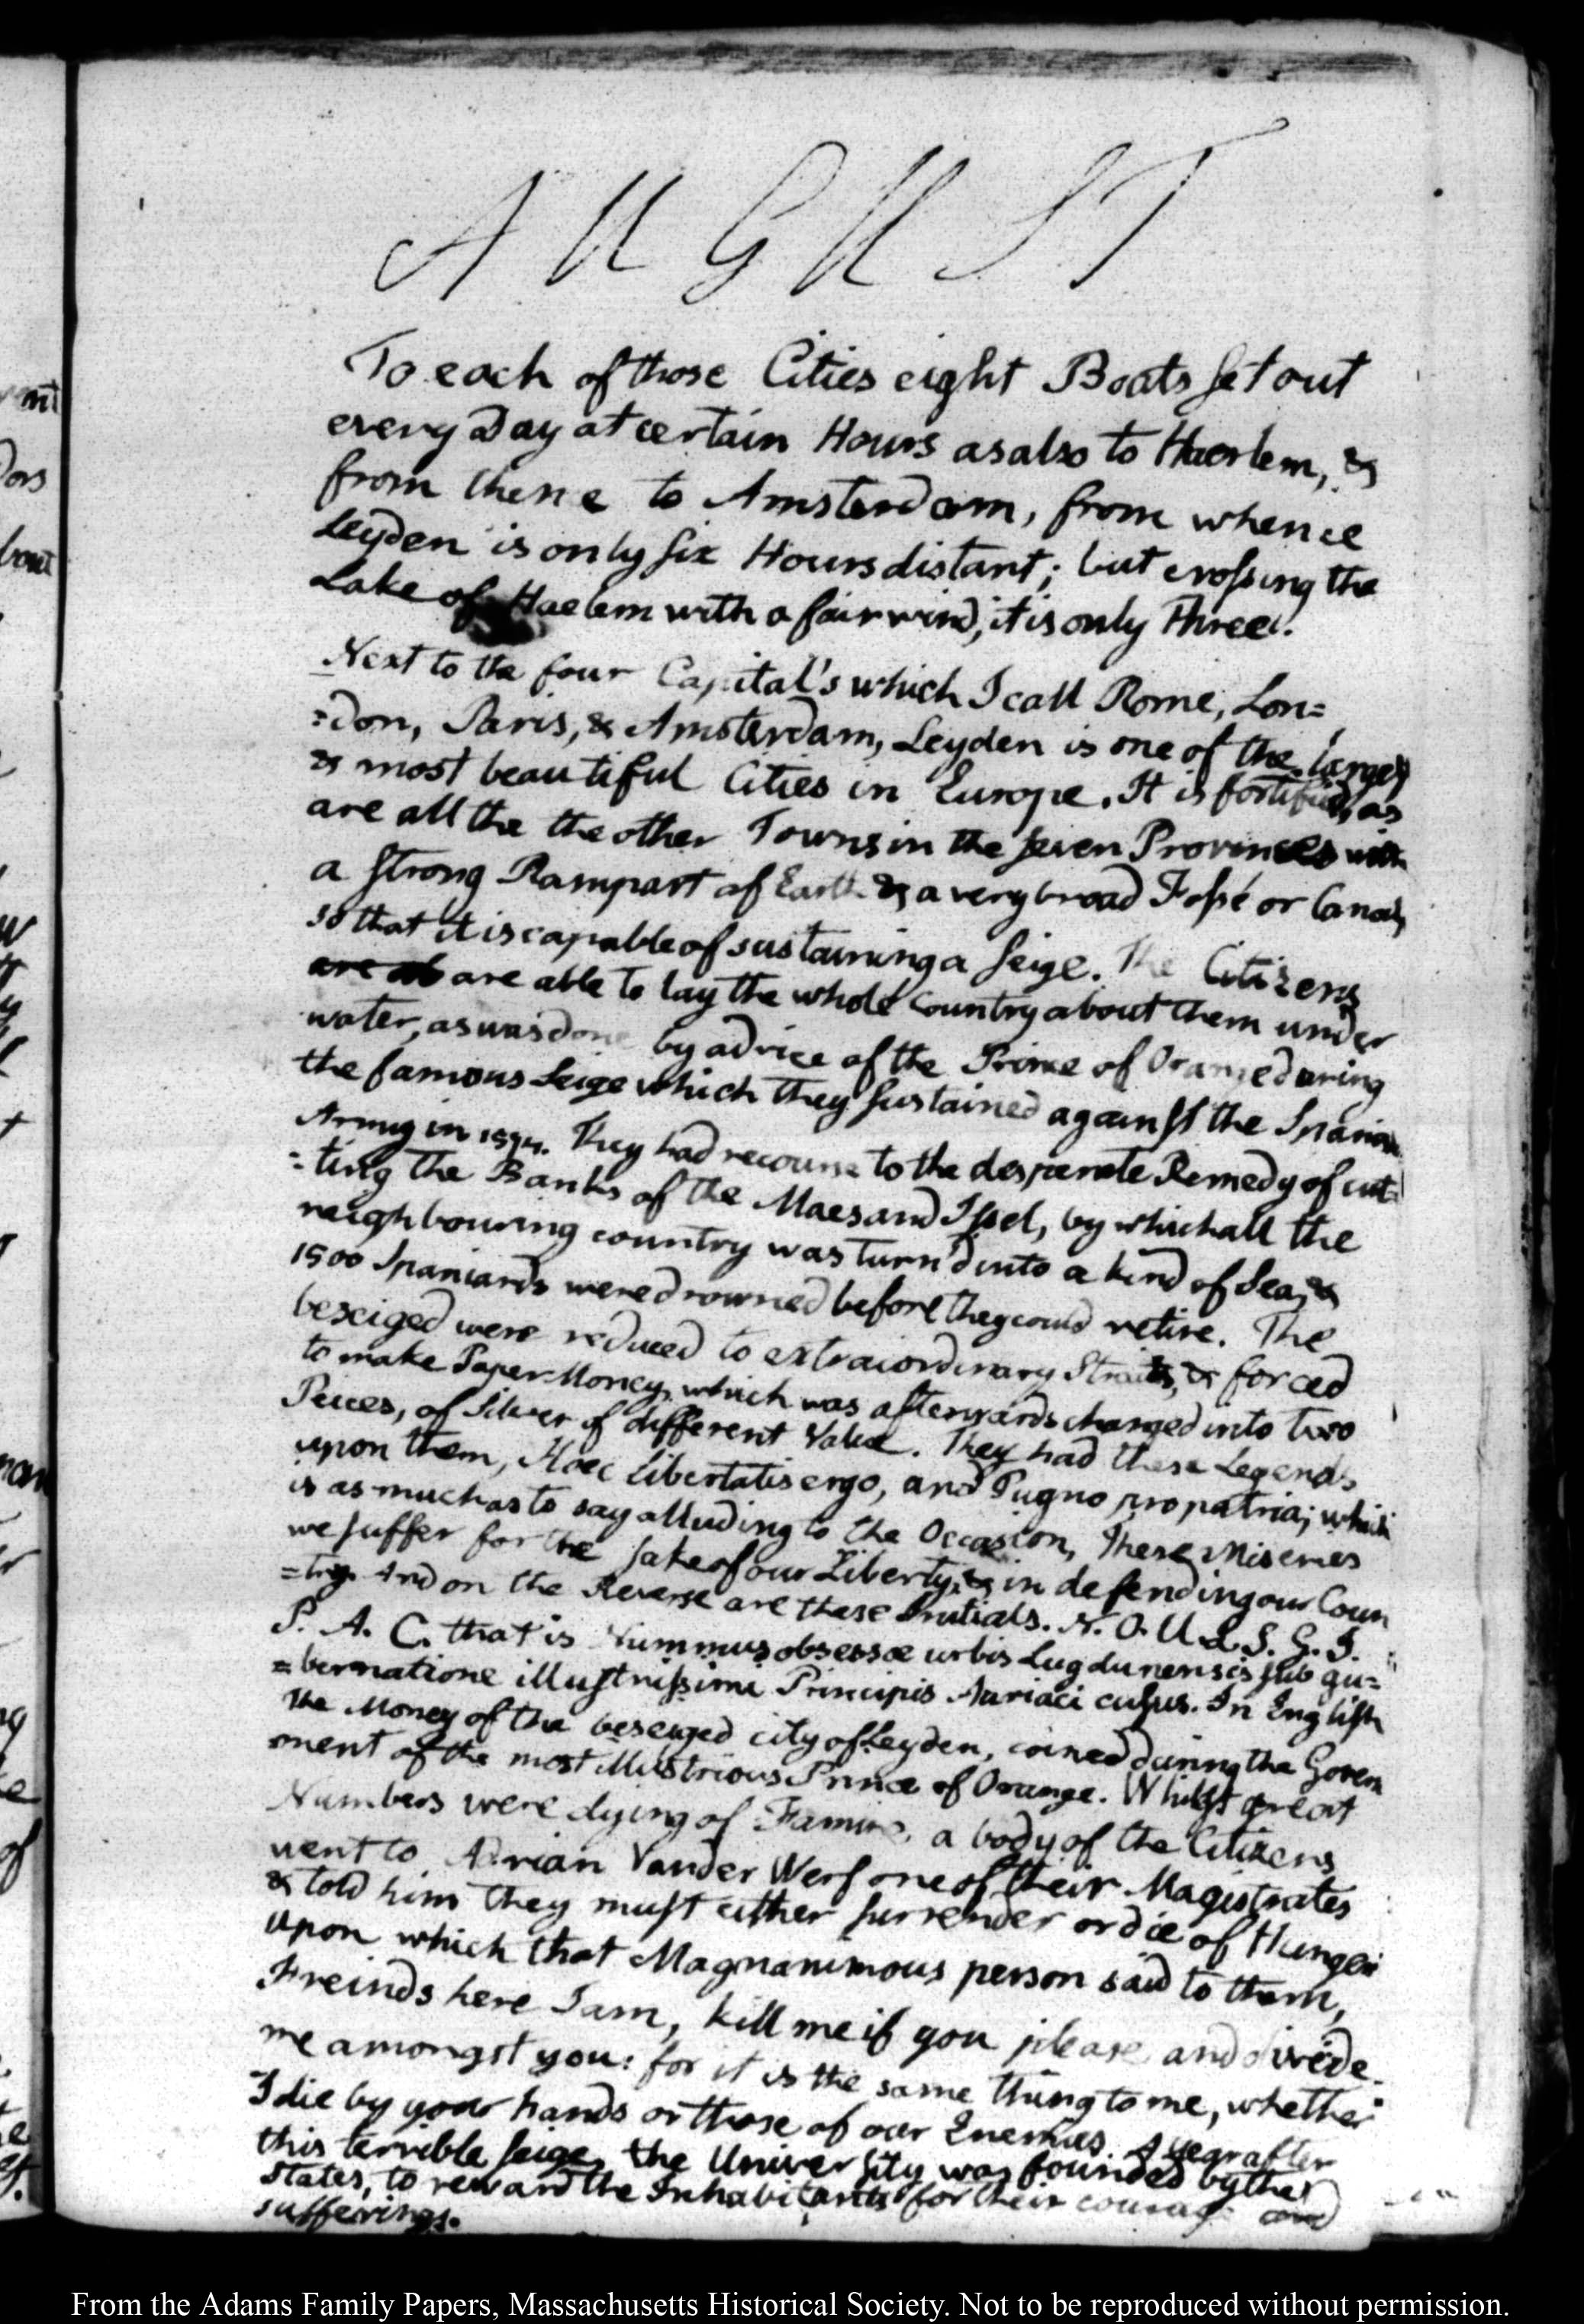 AUGUST
To each of those Cities eight Boats set out
every Day at certain Hours as also to Haerlem, &
from thence to Amsterdam, from whence
Leyden is only six Hours distant; but crossing the
Lake of Haelem with a fair wind, it is only Three.
Next to the four Capital's which I call Rome, Lon=
=don, Paris, & Amsterdam, Leyden is one of the largest
& most beautiful Cities in Europe. It is fortified, as
are all the the other Towns in the seven Provinces with
a strong Rampart of Earth & a very broad Fossé or Canal,
so that it is capable of sustaining a seige. The Citizens
are ab are able to lay the whole Country about them under
water, as was done by advice of the Prince of Orange during
the famous Seige which they sustained against the Spanish
Army in 1574. They had recourse to the desperate Remedy of cut=
=ting the Banks of the Maes and Issel, by which all the
neighbouring country was turn'd into a kind of Sea, &
1500 Spaniards were drowned before they could retire. The
beseiged were reduced to extraiordinary Straits, & forced
to make Paper-Money, which was afterwards changed into two
Peices, of Silver of different Value. They had these Legends
upon them, Haec libertatis ergo, and Pugno pro patria; which
is as much as to say alluding to the Occasion, These Miseries
we suffer for the sake of our Liberty, & in defending our Coun
=try. And on the Reverse are these Initials. N. O. U. L. S. G. I.
P. A. C. that is Nummus obsessæ urbis Lugdunensis sub gu=
=bernatione illustrissimi Principis Auriaci cusus. In English
The Money of the beseiged city of Leyden, coined during the Govern
ment of the most illustrious Prince of Orange. Whilst great
Numbers were dying of Famine, a body of the Citizens
went to Adrian Vander Werf one of their Magistrates
& told him they must either surrender or die of Hunger
upon which that Magnanimous person said to them,
Freinds here I am, kill me if you please and divide
me amongst you: for it is the same thing to me, whether
I die by your hands or those of our Enemies. A year after
this terrible seige, the University was founded by the
States, to reward the Inhabitants for their courage and
sufferings.
From the Adams Family Papers, Massachusetts Historical Society. Not to be reproduced without permission.